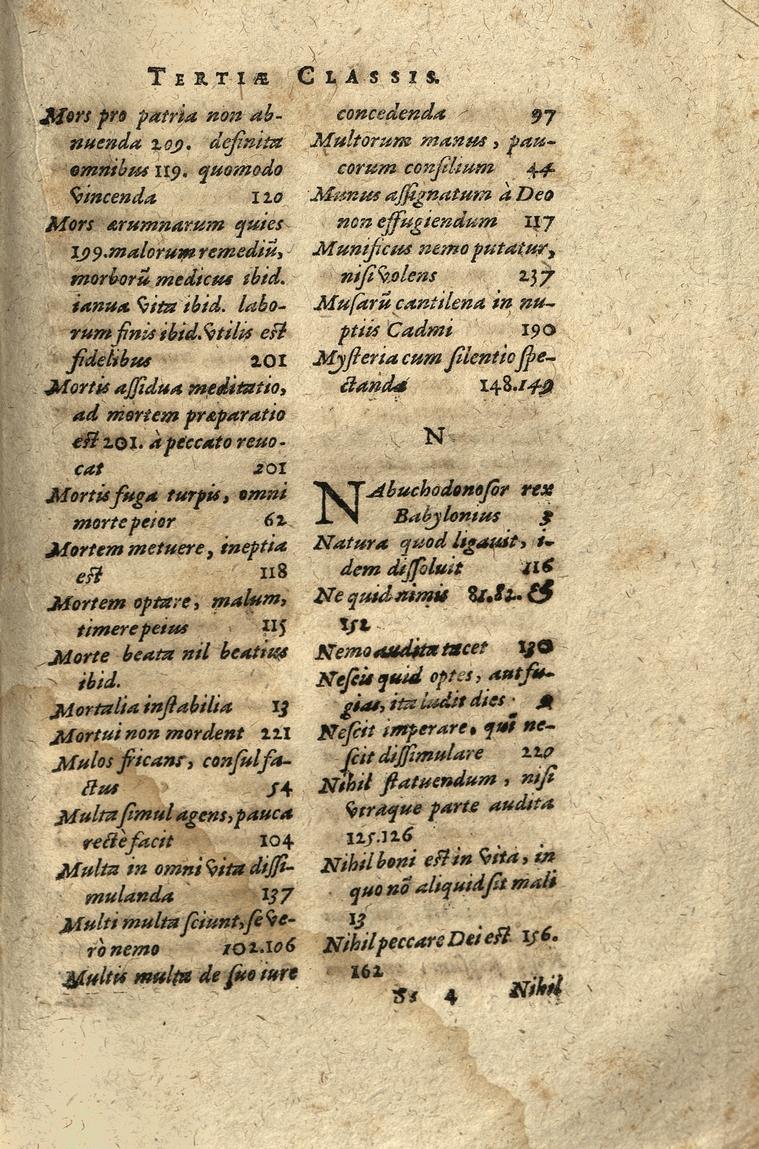 TERTIÆ CLASSIS.
Mors pro patria non ab-
nuenda 209. definita
omnibus 119. quomodo
vincenda 120
Mors ærumnarum quies
199. malorum remediũ,
morborũ medicus ibid.
ianua vitæ ibid. labo-
rum finis ibid. vtilis est
fidelibus 201
Mortis assidua meditatio,
ad mortem præparatio
est 201. à peccato reuo-
cat 201
Mortis fuga turpis, omni
morte peior 62
Mortem metuere, ineptia
est 118
Mortem optare, malum,
timere peius 115
Morte beata nil beatius
ibid.
Mortalia instabilia 13
Mortui non mordent 221
Mulos fricans, consul fa-
ctus 54
Multa simul agens, pauca
rectè facit 104
Multa in omni vita dissi-
mulanda 137
Multi multa sciunt, se ve-
rò nemo 102.106
Multis multa de suo iure
concedenda 97
Multorum manus, pau-
corum consilium 44
Munus assignatum à Deo
non effugiendum 117
Munificus nemo putatur,
nisi volens 237
Musarũ cantilena in nu-
ptiis Cadmi 190
Mysteria cum silentio spe-
ctanda 148.149
N
NAbuchodonosor rex
Babylonius 3
Natura quod ligauit, i-
dem dissoluit 116
Ne quid nimis 81.82. &
152
Nemo audita tacet 130
Nescis quid optes, aut fu-
gias, ita ludit dies
Nescit imperare, qui ne-
scit dissimulare 220
Nihil statuendum, nisi
vtraque parte audita
125.126
Nihil boni est in vita, in
quo nõ aliquid sit mali
13
Nihil peccare Dei est 156.
162
Ss 4 Nihil